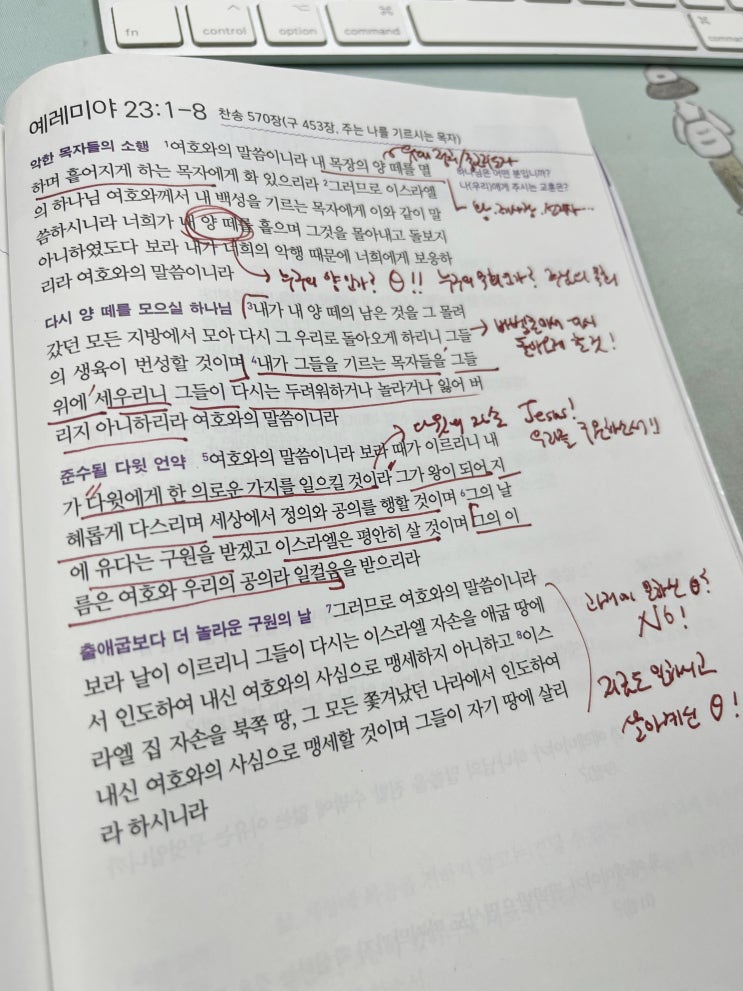 fn
control
option
command
command
예레미야 23:1-8 찬송 570장(구 453장, 주는 나를 기르시는 목자)
악한 목자들의 소행 ¹여호와의 말씀이니라 내 목장의 양 떼를 멸
하며 흩어지게 하는 목자에게 화 있으리라 ²그러므로 이스라엘
의 하나님 여호와께서 내 백성을 기르는 목자에게 이와 같이 말
씀하시니라 너희가 내 양 떼를 흩으며 그것을 몰아내고 돌보지
아니하였도다 보라 내가 너희의 악행 때문에 너희에게 보응하
리라 여호와의 말씀이니라
하나님은 어떤 분입니까?
나(우리)에게 주시는 교훈은?
왕, 제사장, 선지자...
누구의 양인가? Θ!! 누구의 목회인가?
다시 양 떼를 모으실 하나님 ³내가 내 양 떼의 남은 것을 그 몰려
갔던 모든 지방에서 모아 다시 그 우리로 돌아오게 하리니 그들
의 생육이 번성할 것이며 ⁴내가 그들을 기르는 목자들을 그들
위에 세우리니 그들이 다시는 두려워하거나 놀라거나 잃어 버
리지 아니하리라 여호와의 말씀이니라
바벨론에서 다시
돌아오게 할 것!
준수될 다윗 언약 ⁵여호와의 말씀이니라 보라 때가 이르리니 내
가 다윗에게 한 의로운 가지를 일으킬 것이라 그가 왕이 되어 지
혜롭게 다스리며 세상에서 정의와 공의를 행할 것이며 ⁶그의 날
에 유다는 구원을 받겠고 이스라엘은 평안히 살 것이며 그의 이
름은 여호와 우리의 공의라 일컬음을 받으리라
다윗의 자손 Jesus!
우리를 구원하소서!!
출애굽보다 더 놀라운 구원의 날 ⁷그러므로 여호와의 말씀이니라
보라 날이 이르리니 그들이 다시는 이스라엘 자손을 애굽 땅에
서 인도하여 내신 여호와의 사심으로 맹세하지 아니하고 ⁸이스
라엘 집 자손을 북쪽 땅, 그 모든 쫓겨났던 나라에서 인도하여
내신 여호와의 사심으로 맹세할 것이며 그들이 자기 땅에 살리
라 하시니라
과거에 일하신 Θ?
No!
지금도 일하시고
살아계신 Θ!